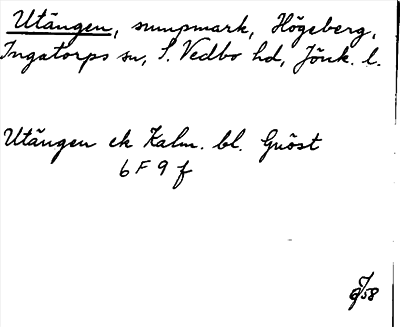 Utängen, sumpmark, Högeberg,
Ingatorps sn, S. Vedbo hd, Jönk. l.
Utängen ek Kalm. bl. Gnöst
6 F 9 f
58